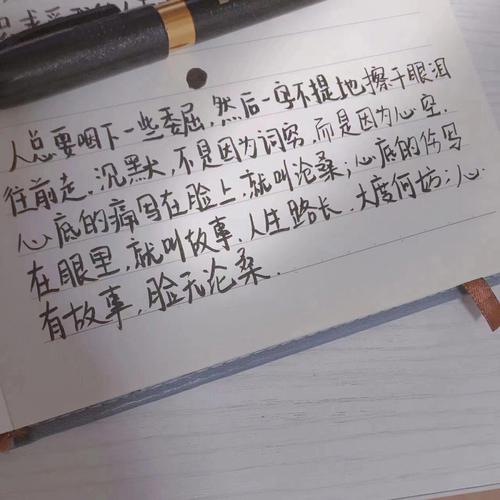 人总要咽下一些委屈,然后一字不提地擦干眼泪
往前走,沉默,不是因为词穷,而是因为心空.
心底的痛写在脸上,就叫沧桑;心底的伤写
在眼里,就叫故事,人生路长,大度何妨;心
有故事,脸无沧桑.